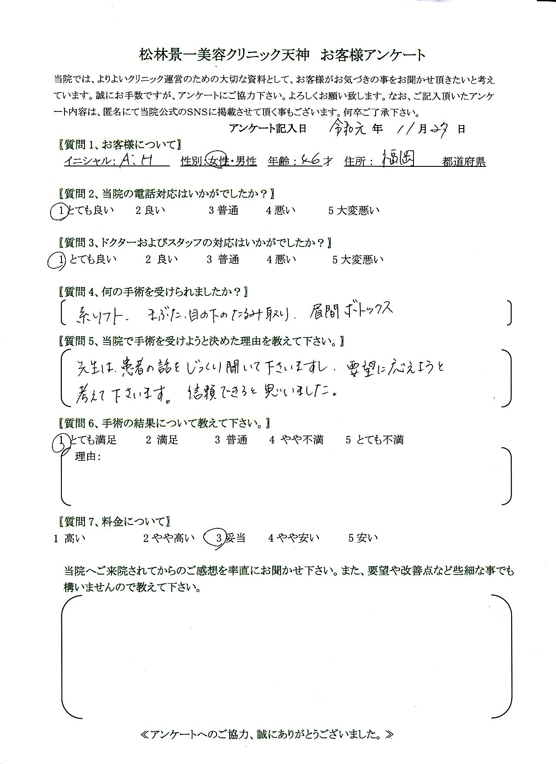 松林景一美容クリニック天神　お客様アンケート
当院では、よりよいクリニック運営のための大切な資料として、お客様がお気づきの事をお聞かせ頂きたいと考え
ています。誠にお手数ですが、アンケートにご協力下さい。よろしくお願い致します。なお、ご記入頂いたアンケ
ート内容は、匿名にて当院公式のSNSに掲載させて頂く事もございます。何卒ご了承下さい。
アンケート記入日　令和元 年 11 月 27 日
〖質問1、お客様について〗
イニシャル: A.H　性別:女性・男性　年齢:46才　住所: 福岡　都道府県
〖質問2、当院の電話対応はいかがでしたか?〗
1とても良い　2 良い　3 普通　4 悪い　5 大変悪い
〖質問3、ドクターおよびスタッフの対応はいかがでしたか?〗
1 とても良い　2 良い　3 普通　4 悪い　5 大変悪い
〖質問4、何の手術を受けられましたか?〗
糸リフト、まぶた、目の下のたるみ取り、眉間ボトックス
〖質問5、当院で手術を受けようと決めた理由を教えて下さい。〗
先生は、患者の話をじっくり聞いて下さいますし、要望に応えようと
考えて下さいます。信頼できると思いました。
〖質問6、手術の結果について教えて下さい。〗
1とても満足　2 満足　3 普通　4 やや不満　5 とても不満
理由:
〖質問7、料金について〗
1 高い　2 やや高い　3 妥当　4 やや安い　5 安い
当院へご来院されてからのご感想を率直にお聞かせ下さい。また、要望や改善点など些細な事でも
構いませんので教えて下さい。
≪アンケートへのご協力、誠にありがとうございました。≫